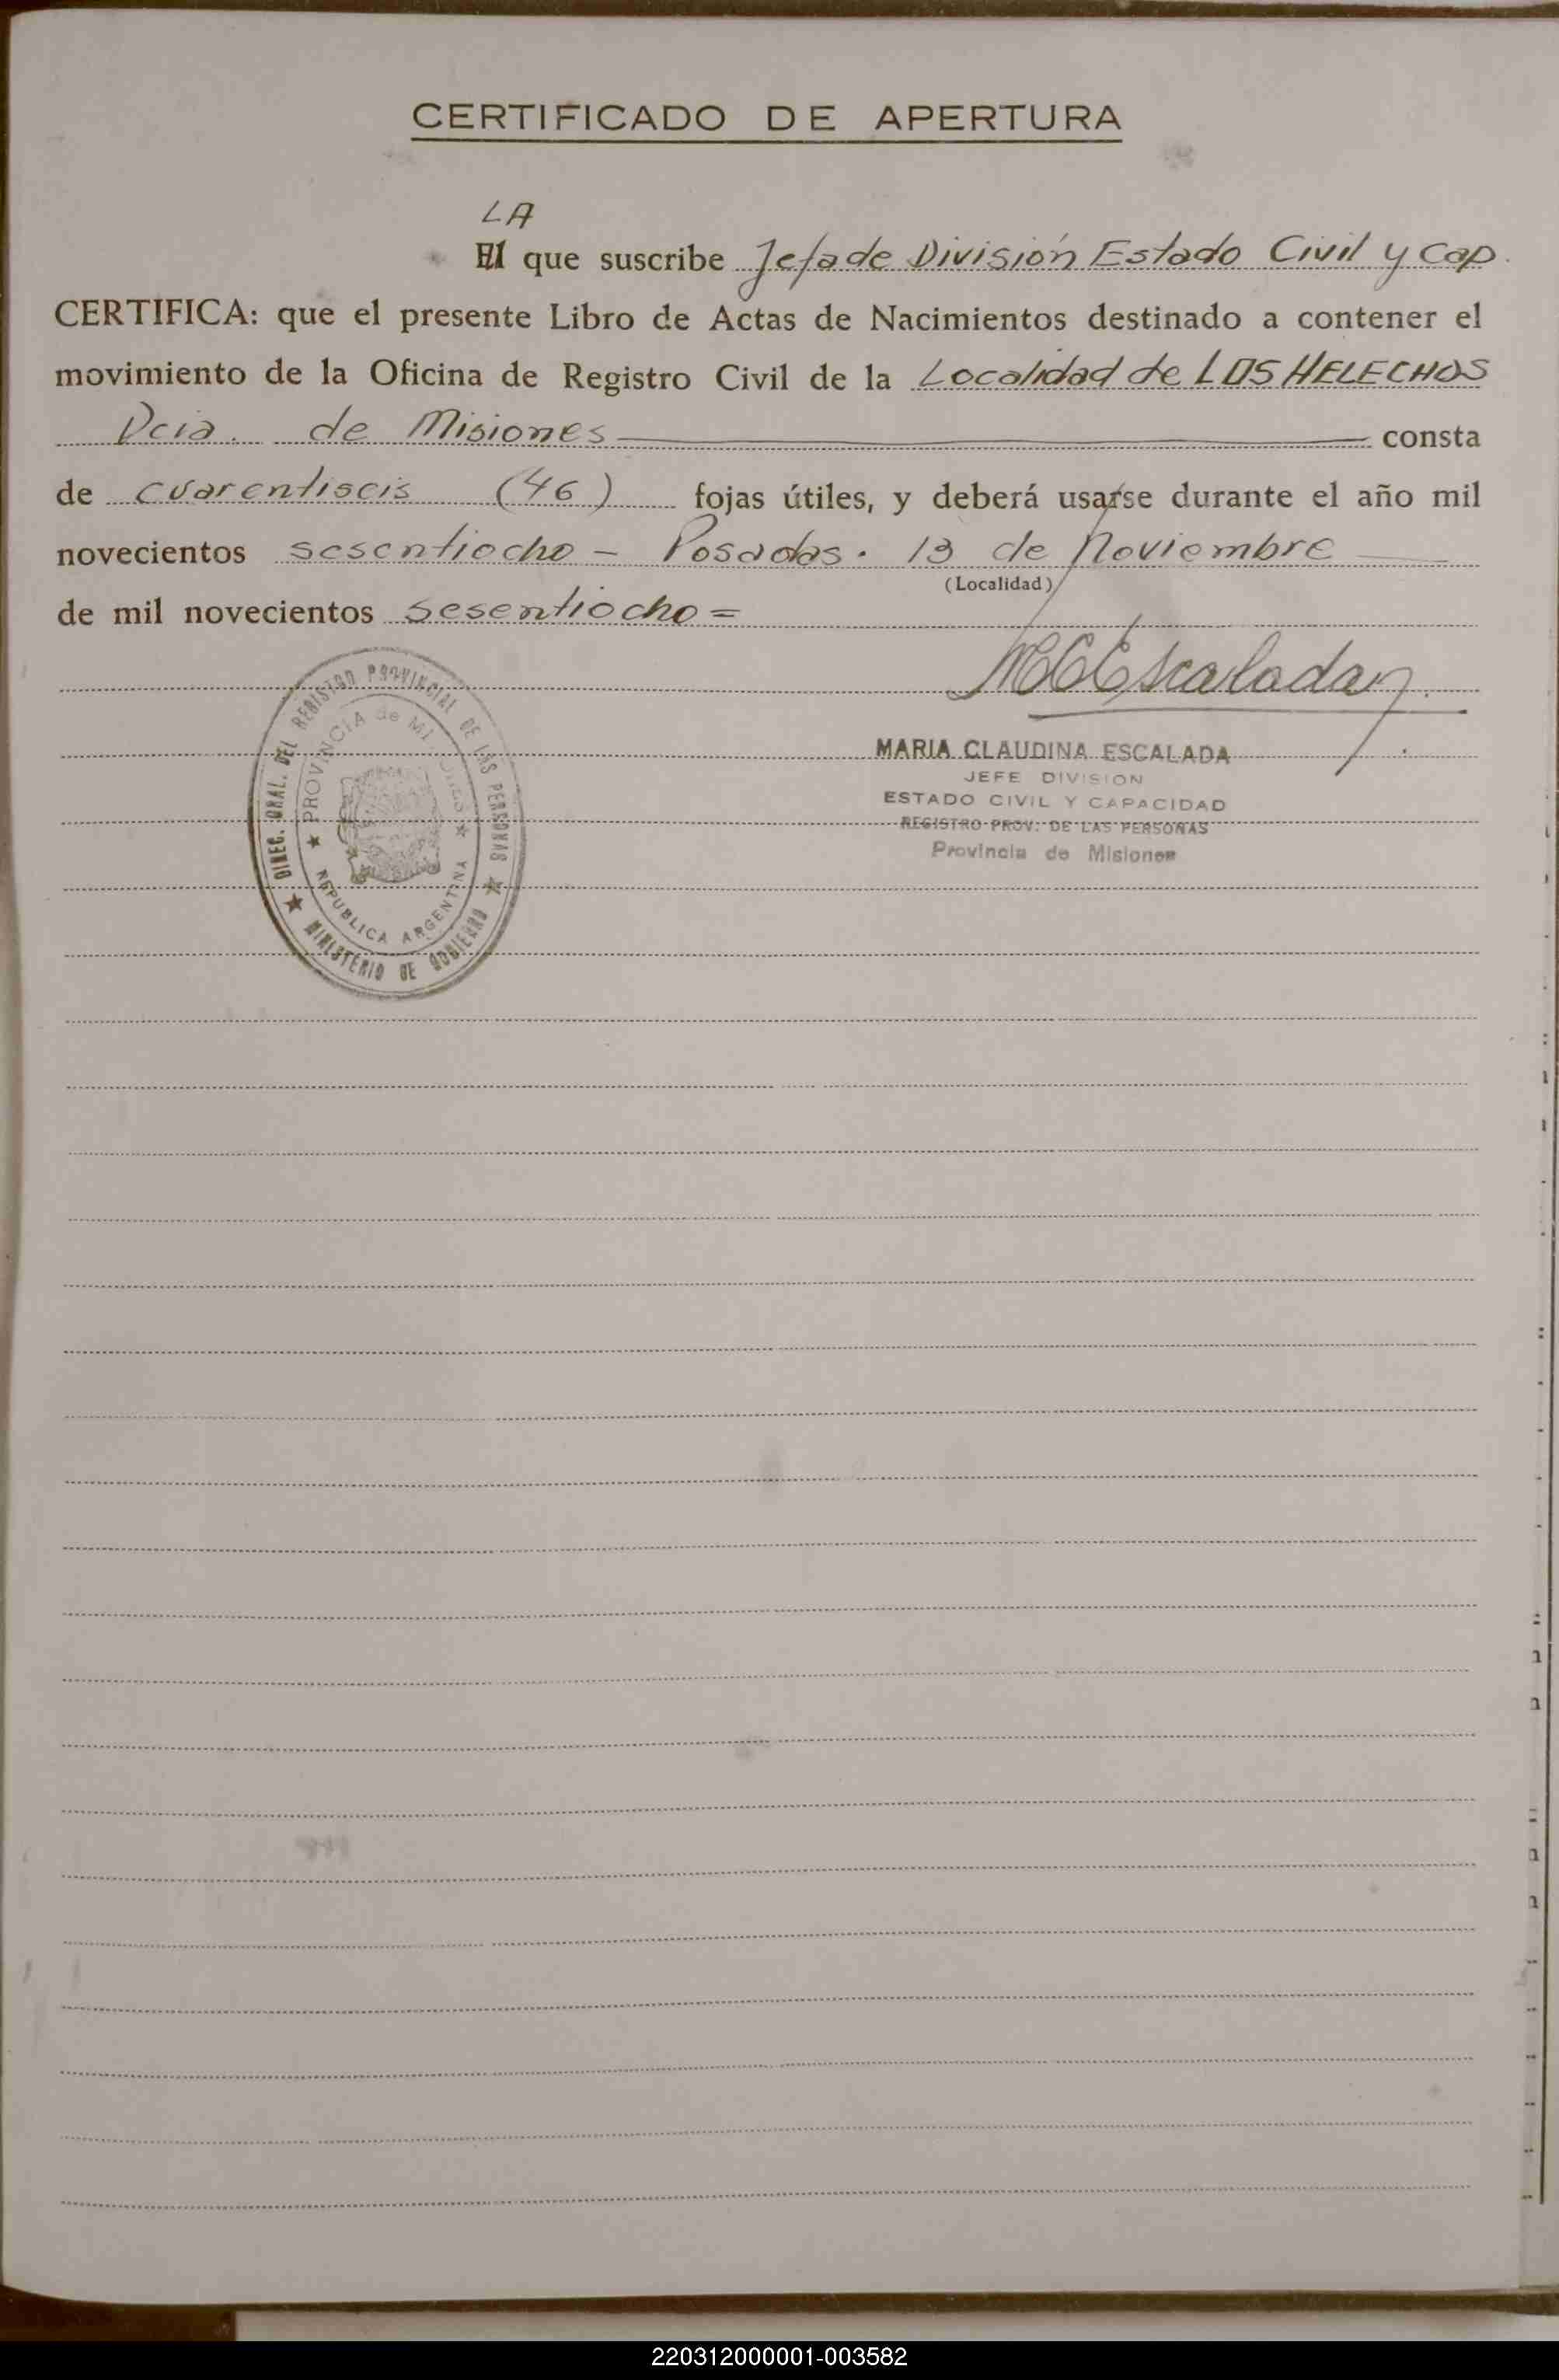 CERTIFICADO DE APERTURA
LA
El que suscribe Jefa de División Estado Civil y Cap.
CERTIFICA: que el presente Libro de Actas de Nacimientos destinado a contener el
movimiento de la Oficina de Registro Civil de la Localidad de LOS HELECHOS
Pcia. de Misiones consta
de cuarentiseis (46) fojas útiles, y deberá usarse durante el año mil
novecientos sesentiocho - Posadas. 13 de Noviembre
(Localidad)
de mil novecientos sesentiocho =
MCEscalada
MARIA CLAUDINA ESCALADA
JEFE DIVISION
ESTADO CIVIL Y CAPACIDAD
REGISTRO PROV. DE LAS PERSONAS
Provincia de Misiones
DIREC. GRAL. DEL REGISTRO PROVINCIAL DE LAS PERSONAS
MINISTERIO DE GOBIERNO
PROVINCIA de MISIONES
REPUBLICA ARGENTINA
220312000001-003582